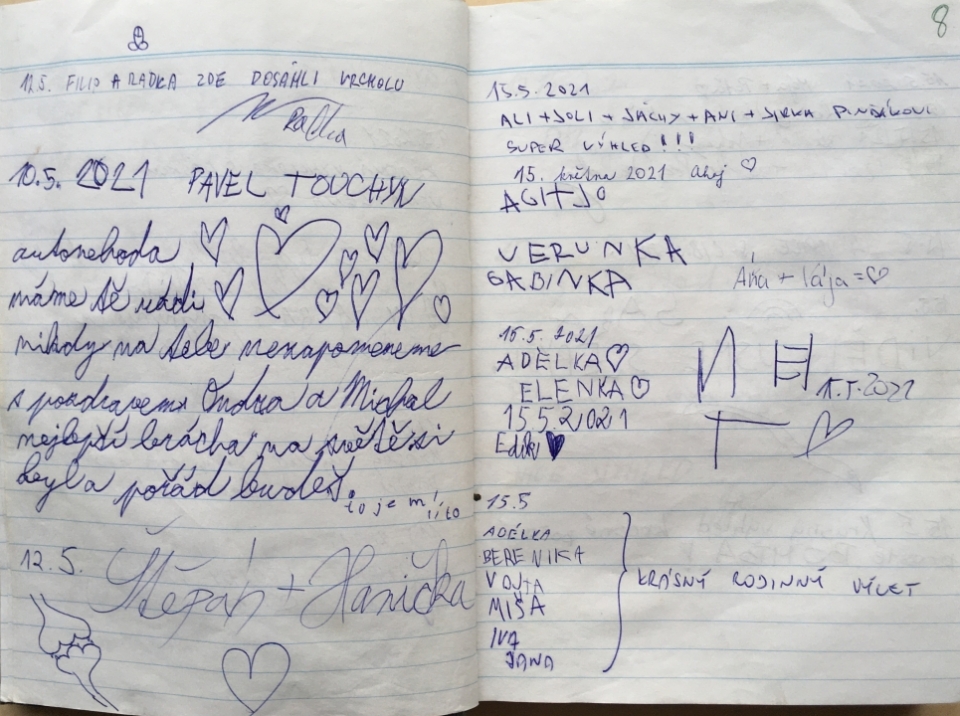 12.5. FILIP A RADKA ZDE DOSÁHLI VRCHOLU
Radka
10.5. 2021 PAVEL TOUCHYN
autonehoda
máme tě rádi
nikdy na tebe nezapomeneme
s pozdravem Ondra a Michal
nejlepší brácha na světě si
byl a pořád budeš.
to je mi líto
12.5. Štěpán + Hanička
8
15.5.2021
ALI + JOLI + JÁCHY + ANI + JIRKA
SUPER VÝHLED!!!
15. května 2021 ahoj ♡
VERUNKA
GABINKA
Áňa + Vája = ♡
15.5.2021
ADÉLKA ♡
ELENKA ♡
15.5.2021
15.5.2021
T ♡
15.5
ADÉLKA
BERENIKA
VOJTA
MIŠA
IVA
JANA
KRÁSNÝ RODINNÝ VÝLET